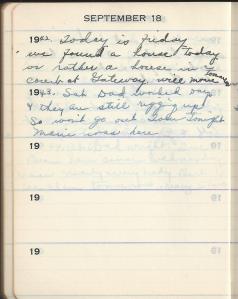 SEPTEMBER 18
1942. Today is Friday
we found a house today
or rather a house in
court at Gateway will move tomorrow
1943. Sat Dad worked days
& they are still rigging up
So wont go out Tour Tonight
Marie was here
19
19
19